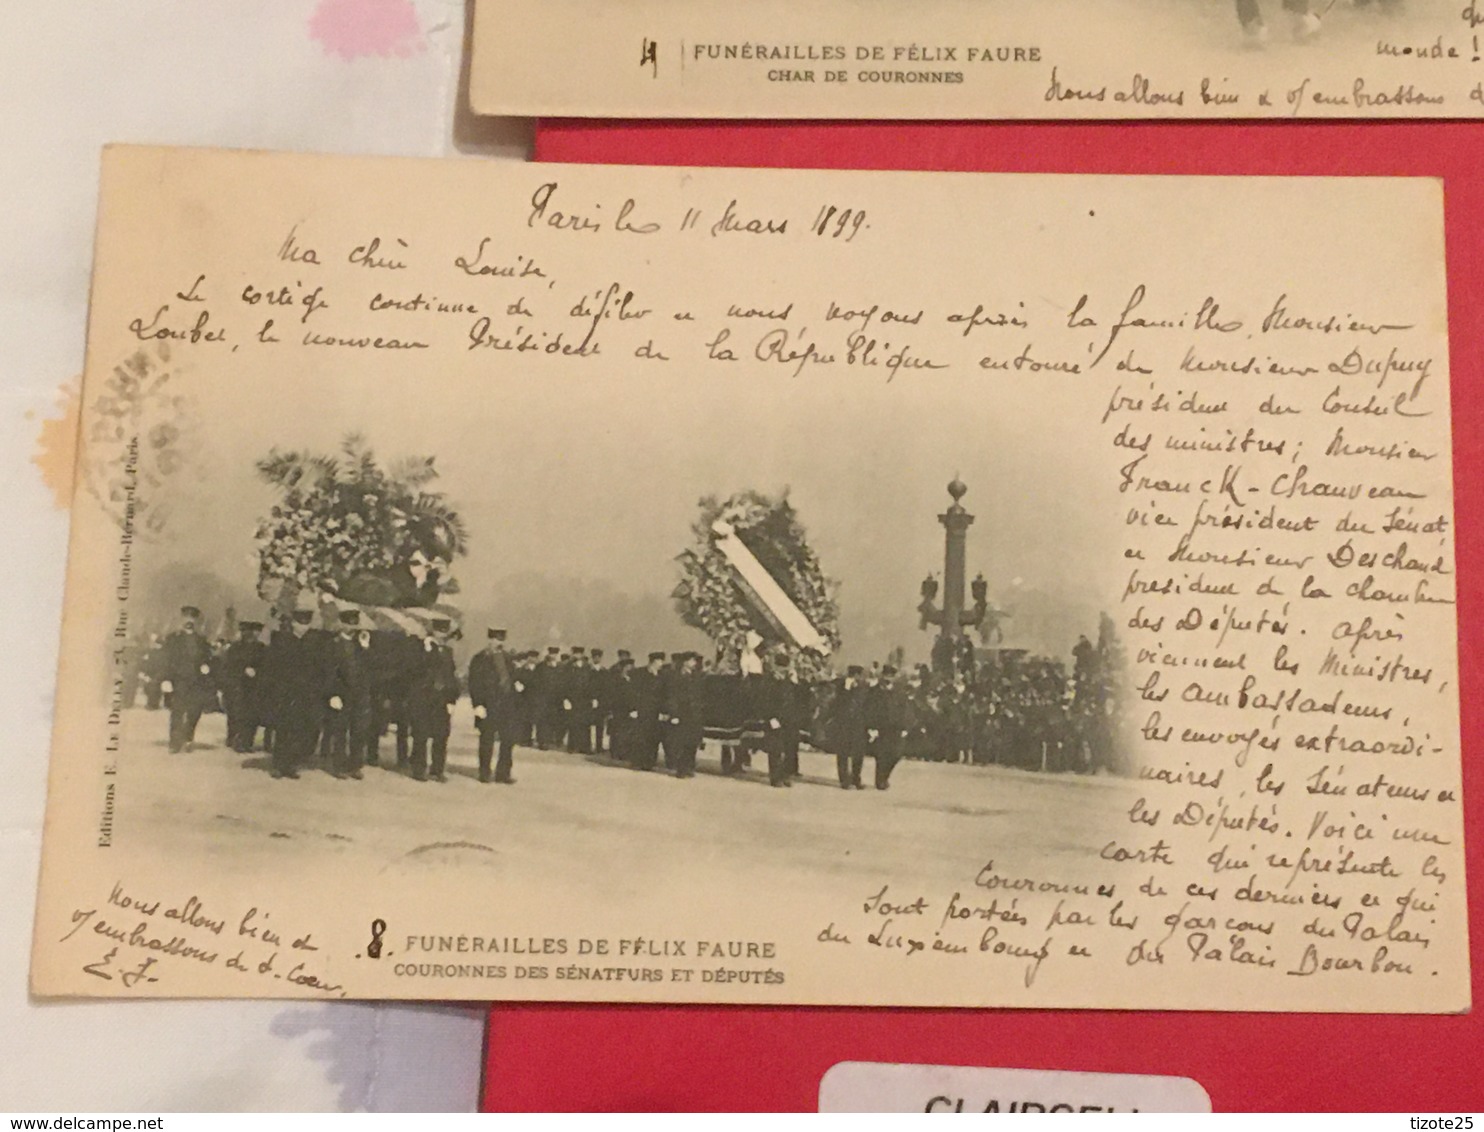 4 FUNÉRAILLES DE FÉLIX FAURE
CHAR DE COURONNES
monde !
Nous allons bien & v/ embrassons
Paris le 11 Mars 1899.
Ma chère Louise,
Le cortège continue de défiler et nous voyons après la famille, Monsieur
Loubet, le nouveau Président de la République entouré de Monsieur Dupuy
président du Conseil
des ministres ; Monsieur
Franck-Chauveau
vice président du Sénat
et Monsieur Deschanel
président de la chambre
des Députés. Après
viennent les Ministres,
les Ambassadeurs,
les envoyés extraordi-
naires, les Sénateurs et
les Députés. Voici une
carte qui représente les
Couronnes de ces derniers et qui
sont portées par les garçons du Palais
du Luxembourg et du Palais Bourbon.
Editions E. Le Deley, 73, Rue Claude-Bernard, Paris
Nous allons bien et
v/ embrassons de t. Cœur.
E. J.
8. FUNÉRAILLES DE FÉLIX FAURE
COURONNES DES SÉNATEURS ET DÉPUTÉS
delcampe.net
tizote25